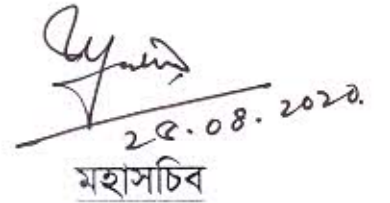 ২৫.০৪.২০২০
মহাসচিব